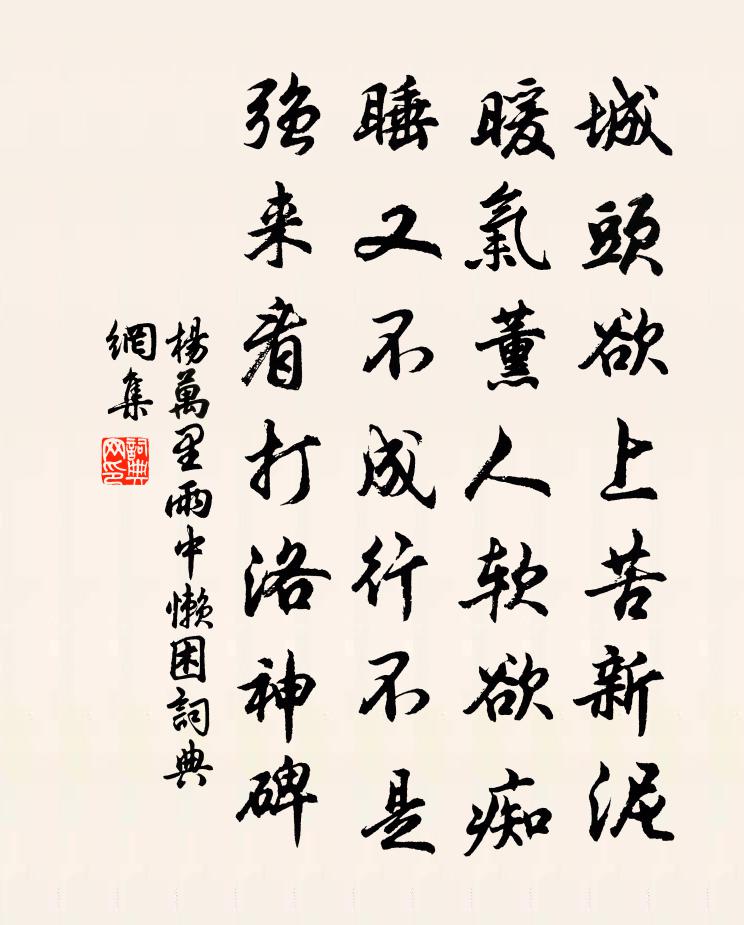 城頭欲上苦新泥
暖氣薰人软欲痴
睡又不成行不是
强来看打洛神碑
楊萬里雨中懒困詞典
網集
詞典
网印